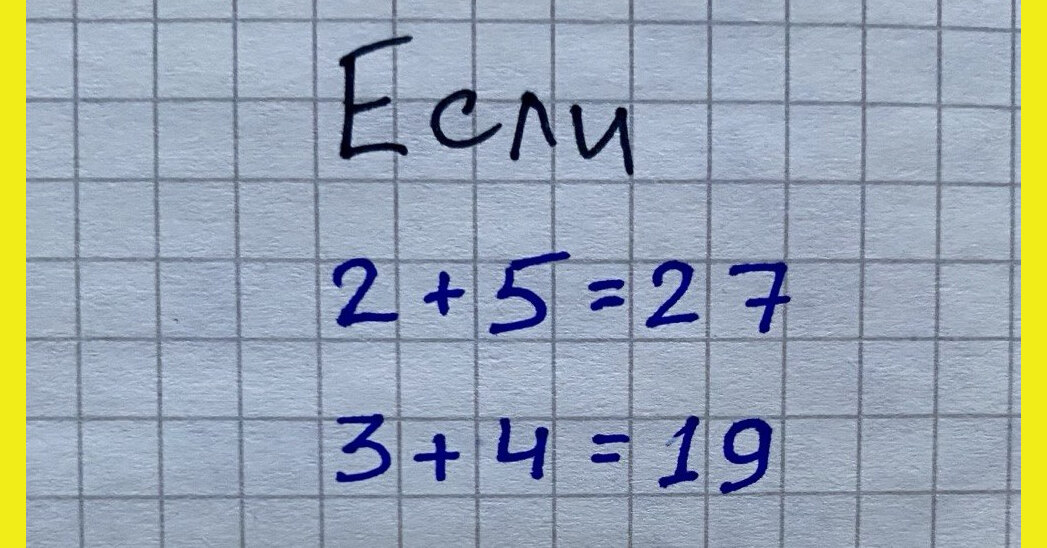 Если
2+5=27
3+4=19